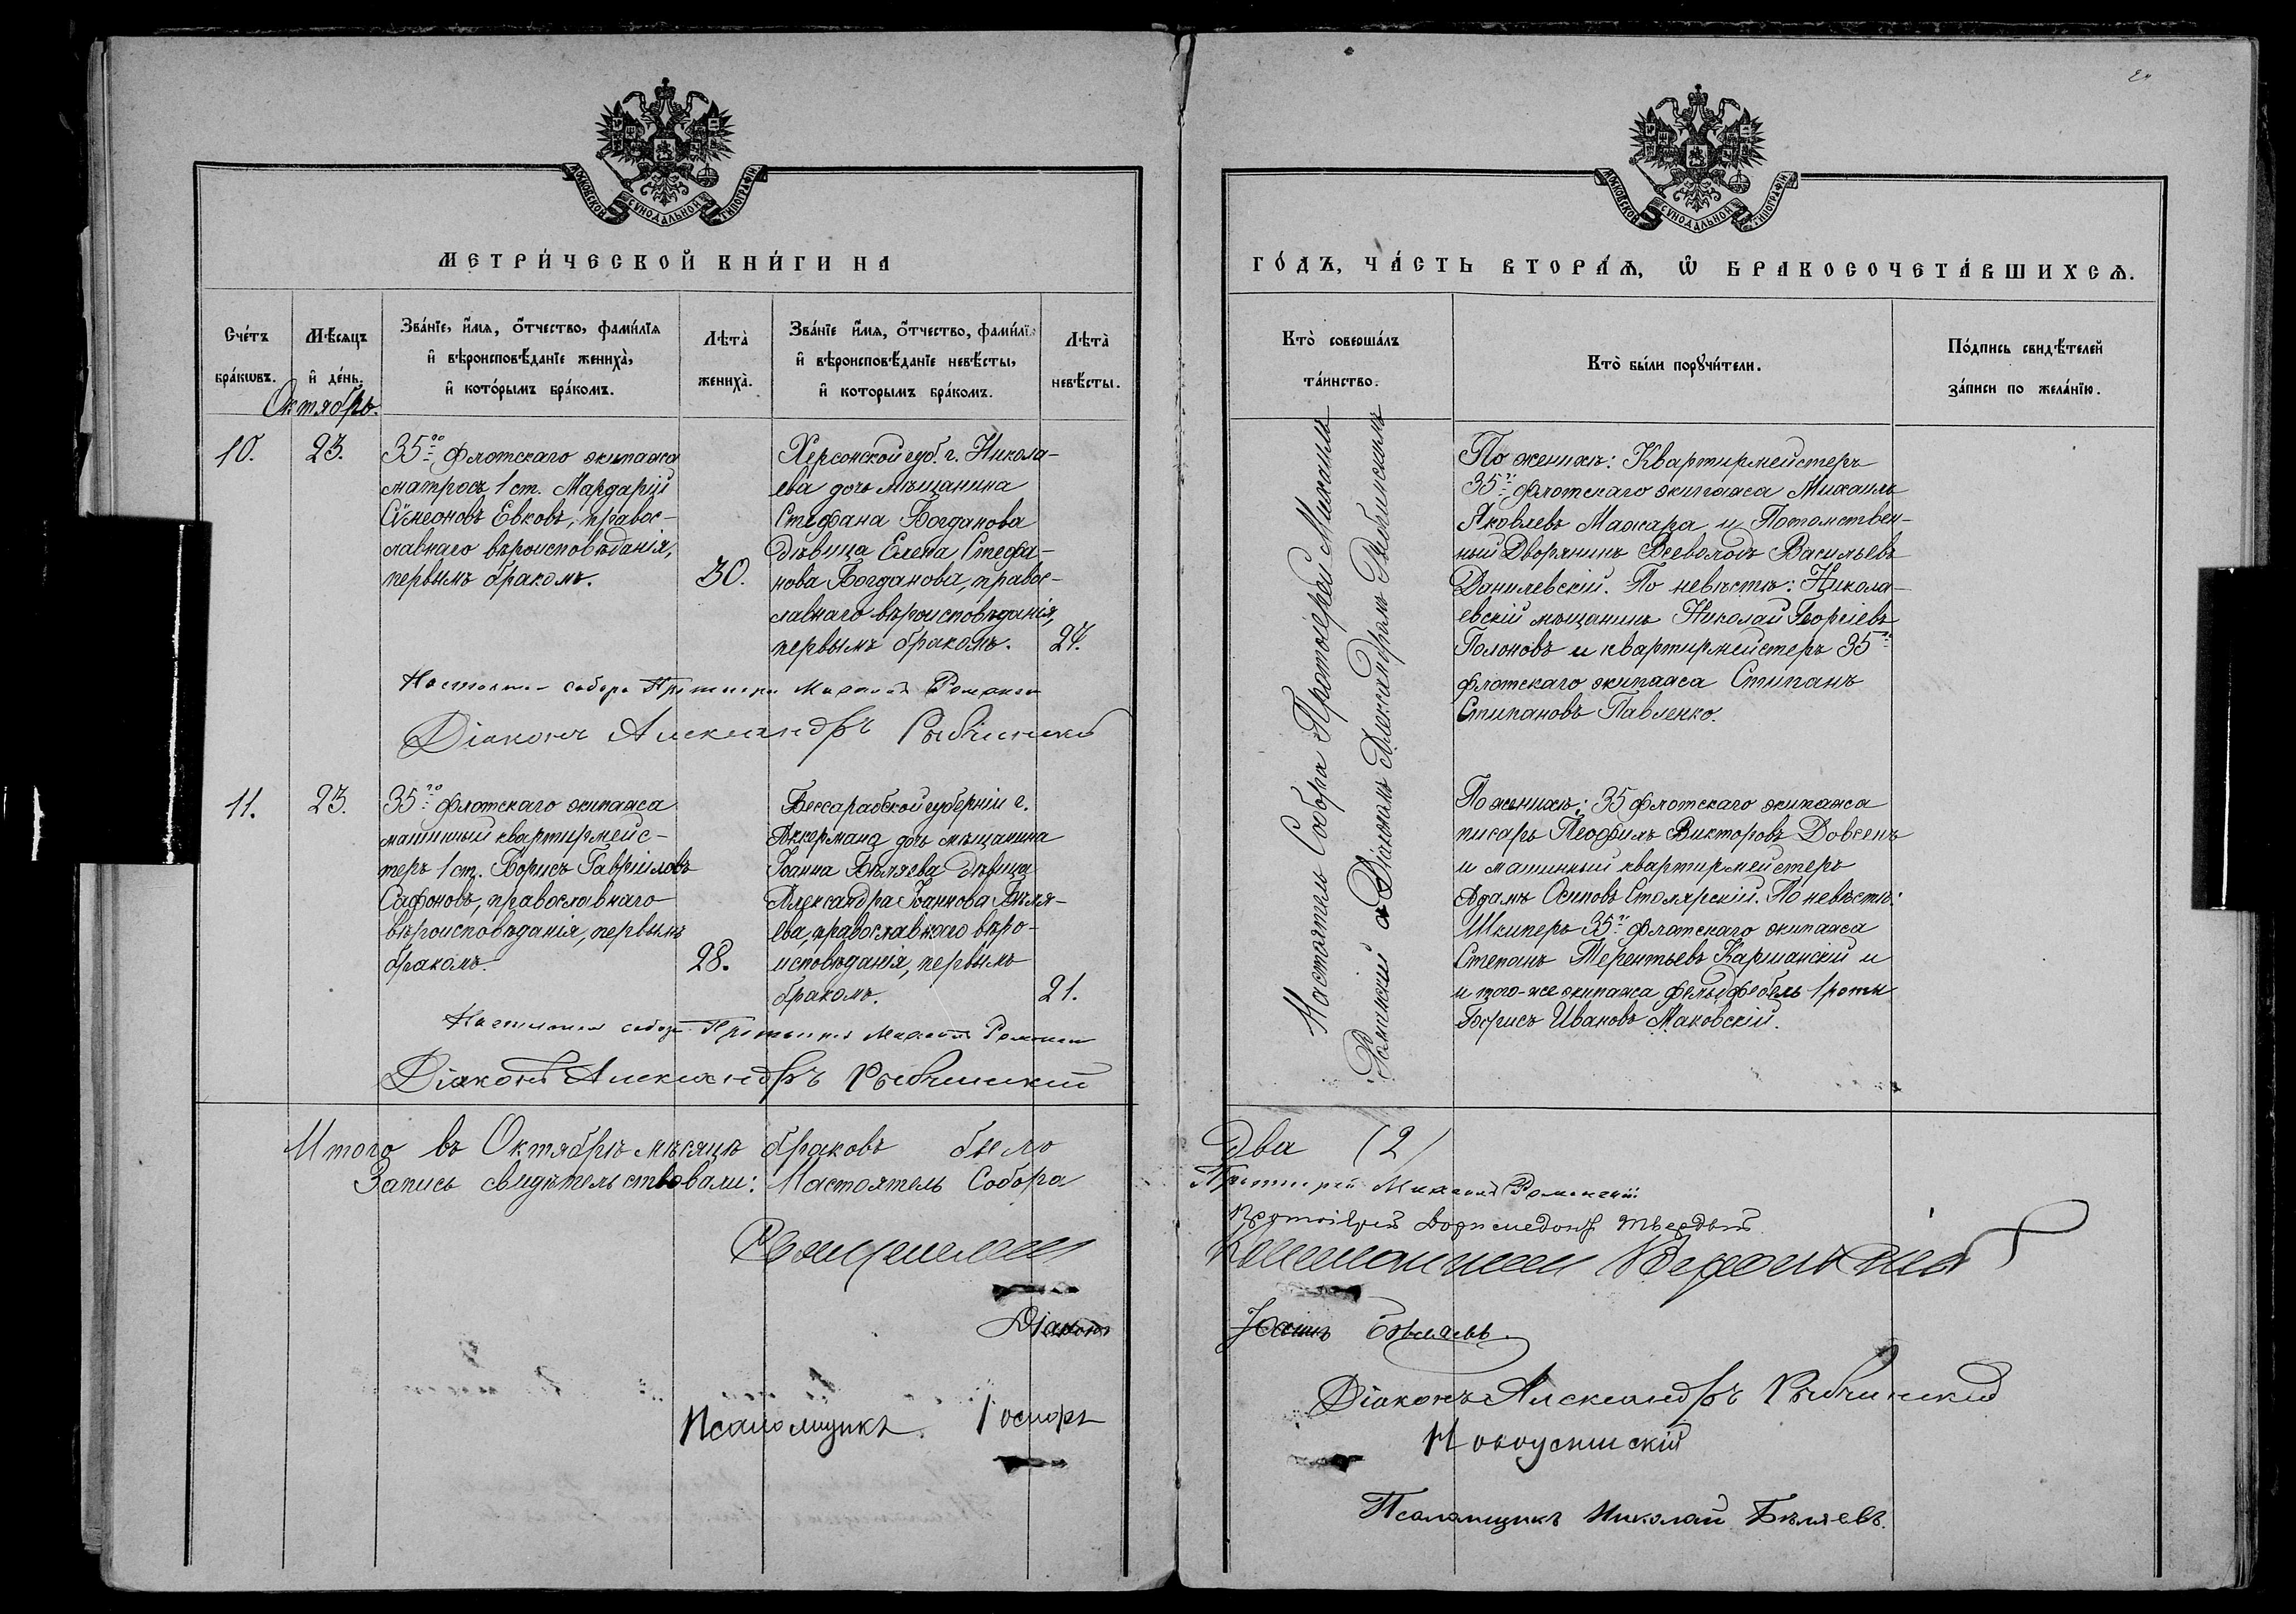 МОСКОВСКОЙ СѴНОДАЛЬНОЙ ТИПОГРАФІИ
МЕТРИ́ЧЕСКОЙ КНИ́ГИ НА
Сче́тъ бра́кѡвъ.
Мѣ́сяцъ и҆ де́нь.
Зва́нїе, и҆́мя, ѻ҆́тчество, фами́лїя
и҆ вѣроисповѣ́данїе жениха̀,
и҆ кото́рымъ бра́комъ.
Лѣта̀ жениха̀.
Зва́нїе и҆́мя, ѻ҆́тчество, фами́лїя
и҆ вѣроисповѣ́данїе невѣ́сты,
и҆ которымъ бра́комъ.
Лѣта̀ невѣ́сты.
Октябрь.
10.
23.
35го флотскаго экипажа
матросъ 1 ст. Мардарій
Сѵмеоновъ Евковъ, правос-
лавнаго вѣроисповѣданія,
первымъ бракомъ.
30.
Херсонской губ. г. Никола-
ева дочь мѣщанина
Стефана Богданова
дѣвица Елена Стефа-
нова Богданова, правос-
лавнаго вѣроисповѣданія,
первымъ бракомъ.
27.
Настоятель собора Протоіерей Михаилъ Роменскій
Діаконъ Александръ Рыбчинскій
11.
23.
35го флотскаго экипажа
машинный квартирмейс-
теръ 1 ст. Борисъ Гавріиловъ
Сафоновъ, православнаго
вѣроисповѣданія, первымъ
бракомъ.
28.
Бессарабской губерніи г.
Аккермана дочь мѣщанина
Іоанна Бѣляева дѣвица
Александра Іоаннова Бѣля-
ева, православнаго вѣро-
исповѣданія, первымъ
бракомъ.
21.
Настоятель собора Протоіерей Михаилъ Роменскій
Діаконъ Александръ Рыбчинскій
Итого въ Октябрѣ мѣсяцѣ браковъ было
Запись свидѣтельствовали: Настоятель Собора
Священникъ
Діаконъ
Псаломщикъ
МОСКОВСКОЙ СѴНОДАЛЬНОЙ ТИПОГРАФІИ
ГО́ДЪ, ЧА́СТЬ ВТОРА́Ѧ, Ѽ БРАКОСОЧЕТА́ВШИХСѦ.
Кто̀ соверша́лъ
та́инство.
Кто̀ бы́ли порꙋчи́тели.
По́дпись свидѣ́телей
за́писи по жела́нїю.
Настоятель Собора Протоіерей Михаилъ
Роменскій съ Діакономъ Александромъ Рыбчинскимъ
По женихѣ: Квартирмейстеръ
35го флотскаго экипажа Михаилъ
Яковлевъ Мажара и Потомствен-
ный Дворянинъ Всеволодъ Васильевъ
Данилевскій. По невѣстѣ: Никола-
евскій мѣщанинъ Николай Георгіевъ
Полоновъ и квартирмейстеръ 35го
флотскаго экипажа Стипанъ
Стипановъ Павленко.
По женихѣ: 35 флотскаго экипажа
писарь Теофилъ Викторовъ Довсенъ
и машинный квартирмейстеръ
Адамъ Осиповъ Столярскій. По невѣстѣ:
Шкиперъ 35го флотскаго экипажа
Степанъ Терентьевъ Каршанскій и
и того-же экипажа фельдфебель 1 роты
Борисъ Ивановъ Маковскій.
Два (2)
Протоіерей Михаилъ Роменскій
Протоіерей
Іоаннъ Бѣляевъ.
Діаконъ Александръ Рыбчинскій
Псаломщикъ Николай Бѣляевъ.